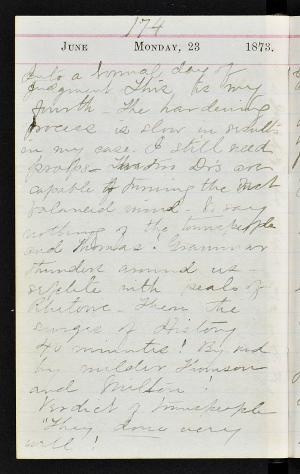 174
June Monday, 23 1873.
into a normal day of
Judgment This is my
fourth - The hardening
process is slow in results
in my case. I still need
props - Drs are
capable of turning the best
balanced mind - to say
nothing of the townspeople
and Thomas! Grammar
thunders around us -
replete with peals of
Rhetoric - Then the
surges of History
40 minutes! By
by milder Thomson
and Milton!
Verdict of townspeople
"They done very
well"!